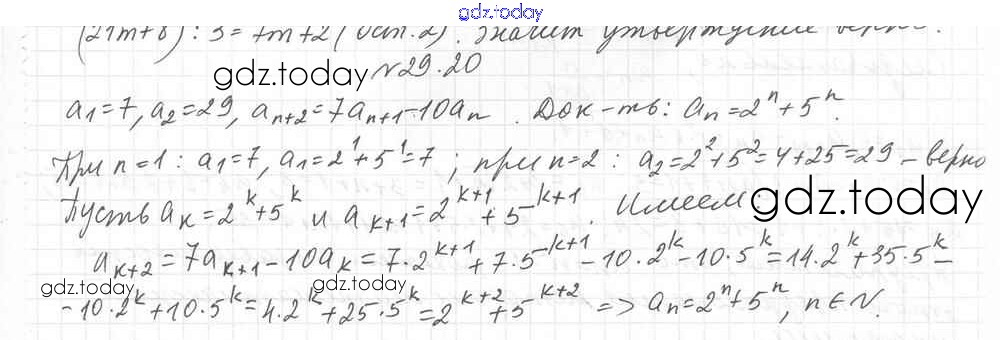 gdz.today
(21m+8):3=7m+2(ост.2). Значит утверждение верно.
gdz.today №29.20
a₁=7, a₂=29, aₙ₊₂=7aₙ₊₁-10aₙ. Док-ть: aₙ=2ⁿ+5ⁿ.
При n=1: a₁=7, a₁=2¹+5¹=7; при n=2: a₂=2²+5²=4+25=29 – верно
Пусть aₖ=2ᵏ+5ᵏ и aₖ₊₁=2ᵏ⁺¹+5ᵏ⁺¹. Имеем: gdz.today
aₖ₊₂=7aₖ₊₁-10aₖ=7·2ᵏ⁺¹+7·5ᵏ⁺¹-10·2ᵏ-10·5ᵏ=14·2ᵏ+35·5ᵏ-
gdz.today gdz.today
-10·2ᵏ+10·5ᵏ=4·2ᵏ+25·5ᵏ=2ᵏ⁺²+5ᵏ⁺² => aₙ=2ⁿ+5ⁿ, n∈N.